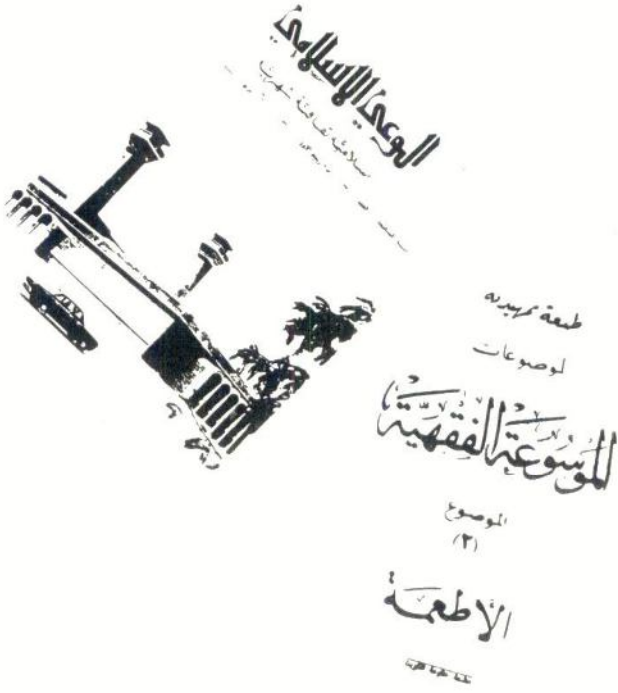 الوعي الإسلامي
إسلامية ثقافية شهرية
طبعة تمهيدية
لموضوعات
الموسوعة الفقهية
الموضوع
(٢)
الأطعمة